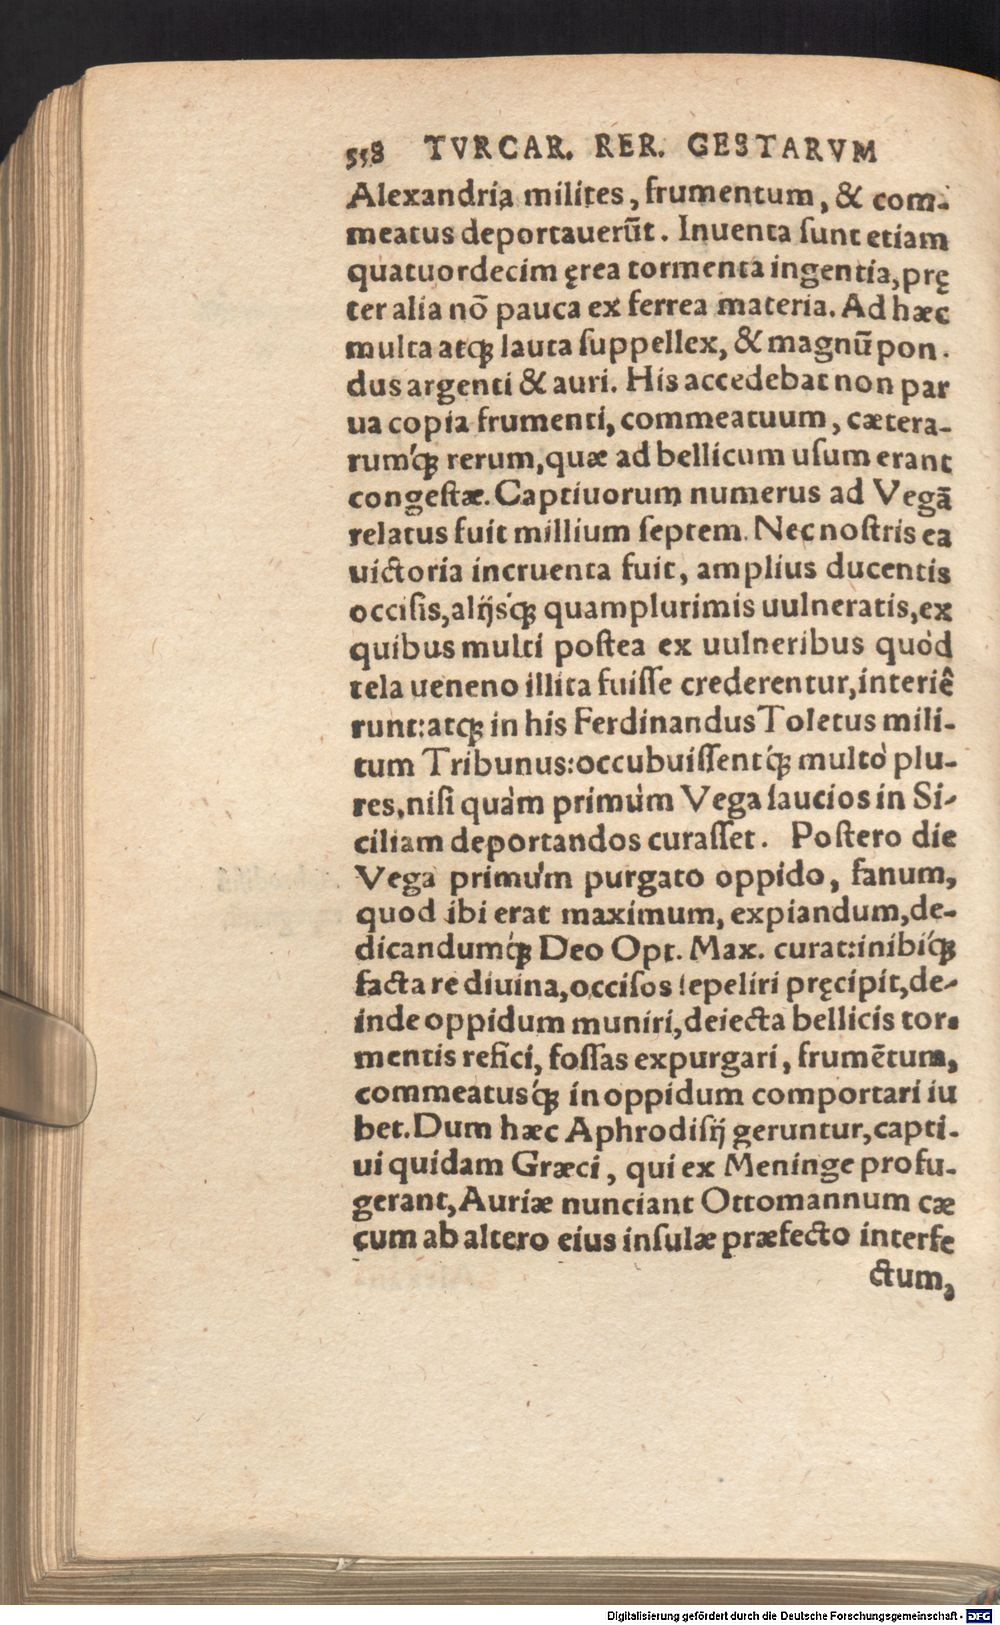 558 TVRCAR. RER. GESTARVM
Alexandria milites, frumentum, & com-
meatus deportauerũt. Inuenta ſunt etiam
quatuordecim ęrea tormenta ingentia, prę
ter alia nõ pauca ex ferrea materia. Ad hæc
multa atq́ꝫ lauta ſuppellex, & magnũ pon-
dus argenti & auri. His accedebat non par
ua copia frumenti, commeatuum, cætera-
rumq́ꝫ rerum, quæ ad bellicum uſum erant
congeſtæ. Captiuorum numerus ad Vegã
relatus fuit millium ſeptem. Nec noſtris ea
uictoria incruenta fuit, amplius ducentis
occiſis, alijsq́ꝫ quamplurimis uulneratis, ex
quibus multi poſtea ex uulneribus quòd
tela ueneno illita fuiſſe crederentur, interiê
runt: atq́ꝫ in his Ferdinandus Toletus mili-
tum Tribunus: occubuiſſentq́ꝫ multò plu-
res, niſi quàm primùm Vega ſaucios in Si-
ciliam deportandos curaſſet. Poſtero die
Vega primùm purgato oppido, fanum,
quod ibi erat maximum, expiandum, de-
dicandumq́ꝫ Deo Opt. Max. curat: inibiq́ꝫ
facta re diuina, occiſos ſepeliri pręcipit, de-
inde oppidum muniri, deiecta bellicis tor-
mentis refici, foſſas expurgari, frumẽtum,
commeatusq́ꝫ in oppidum comportari iu
bet. Dum hæc Aphrodiſij geruntur, capti-
ui quidam Græci, qui ex Meninge profu-
gerant, Auriæ nunciant Ottomannum cæ
cum ab altero eius inſulæ præfecto interfe
ctum,
Digitalisierung gefördert durch die Deutsche Forschungsgemeinschaft - DFG